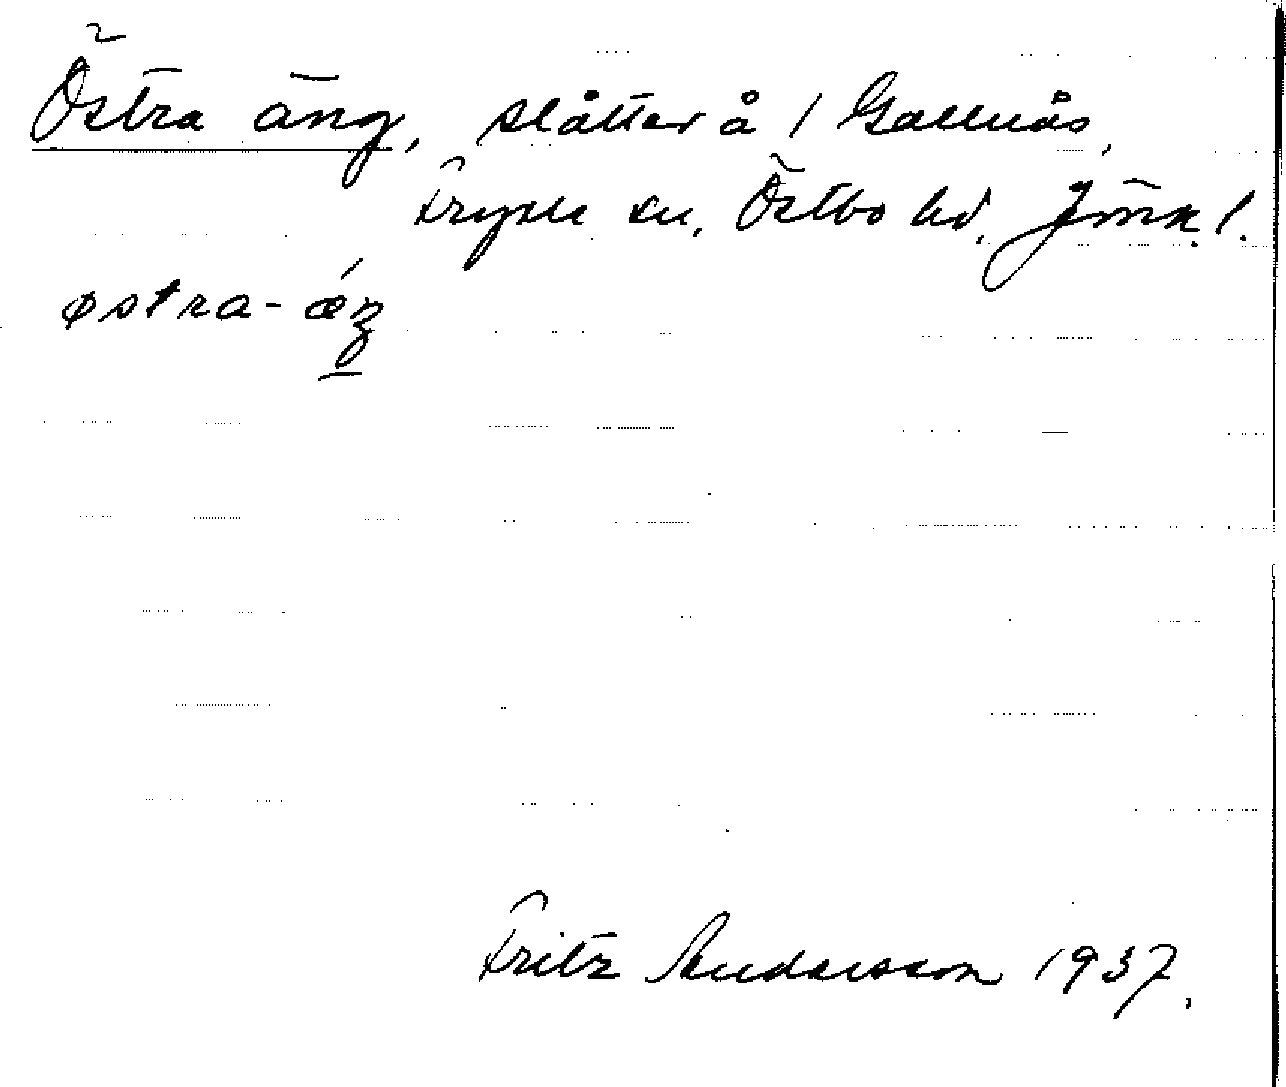 Östra äng, slåtter å 1 Gällnäs,
Fryele sn, Östbo hd, Jönk. l.
østra-ǽŋ
Fritz Andersson 1937.